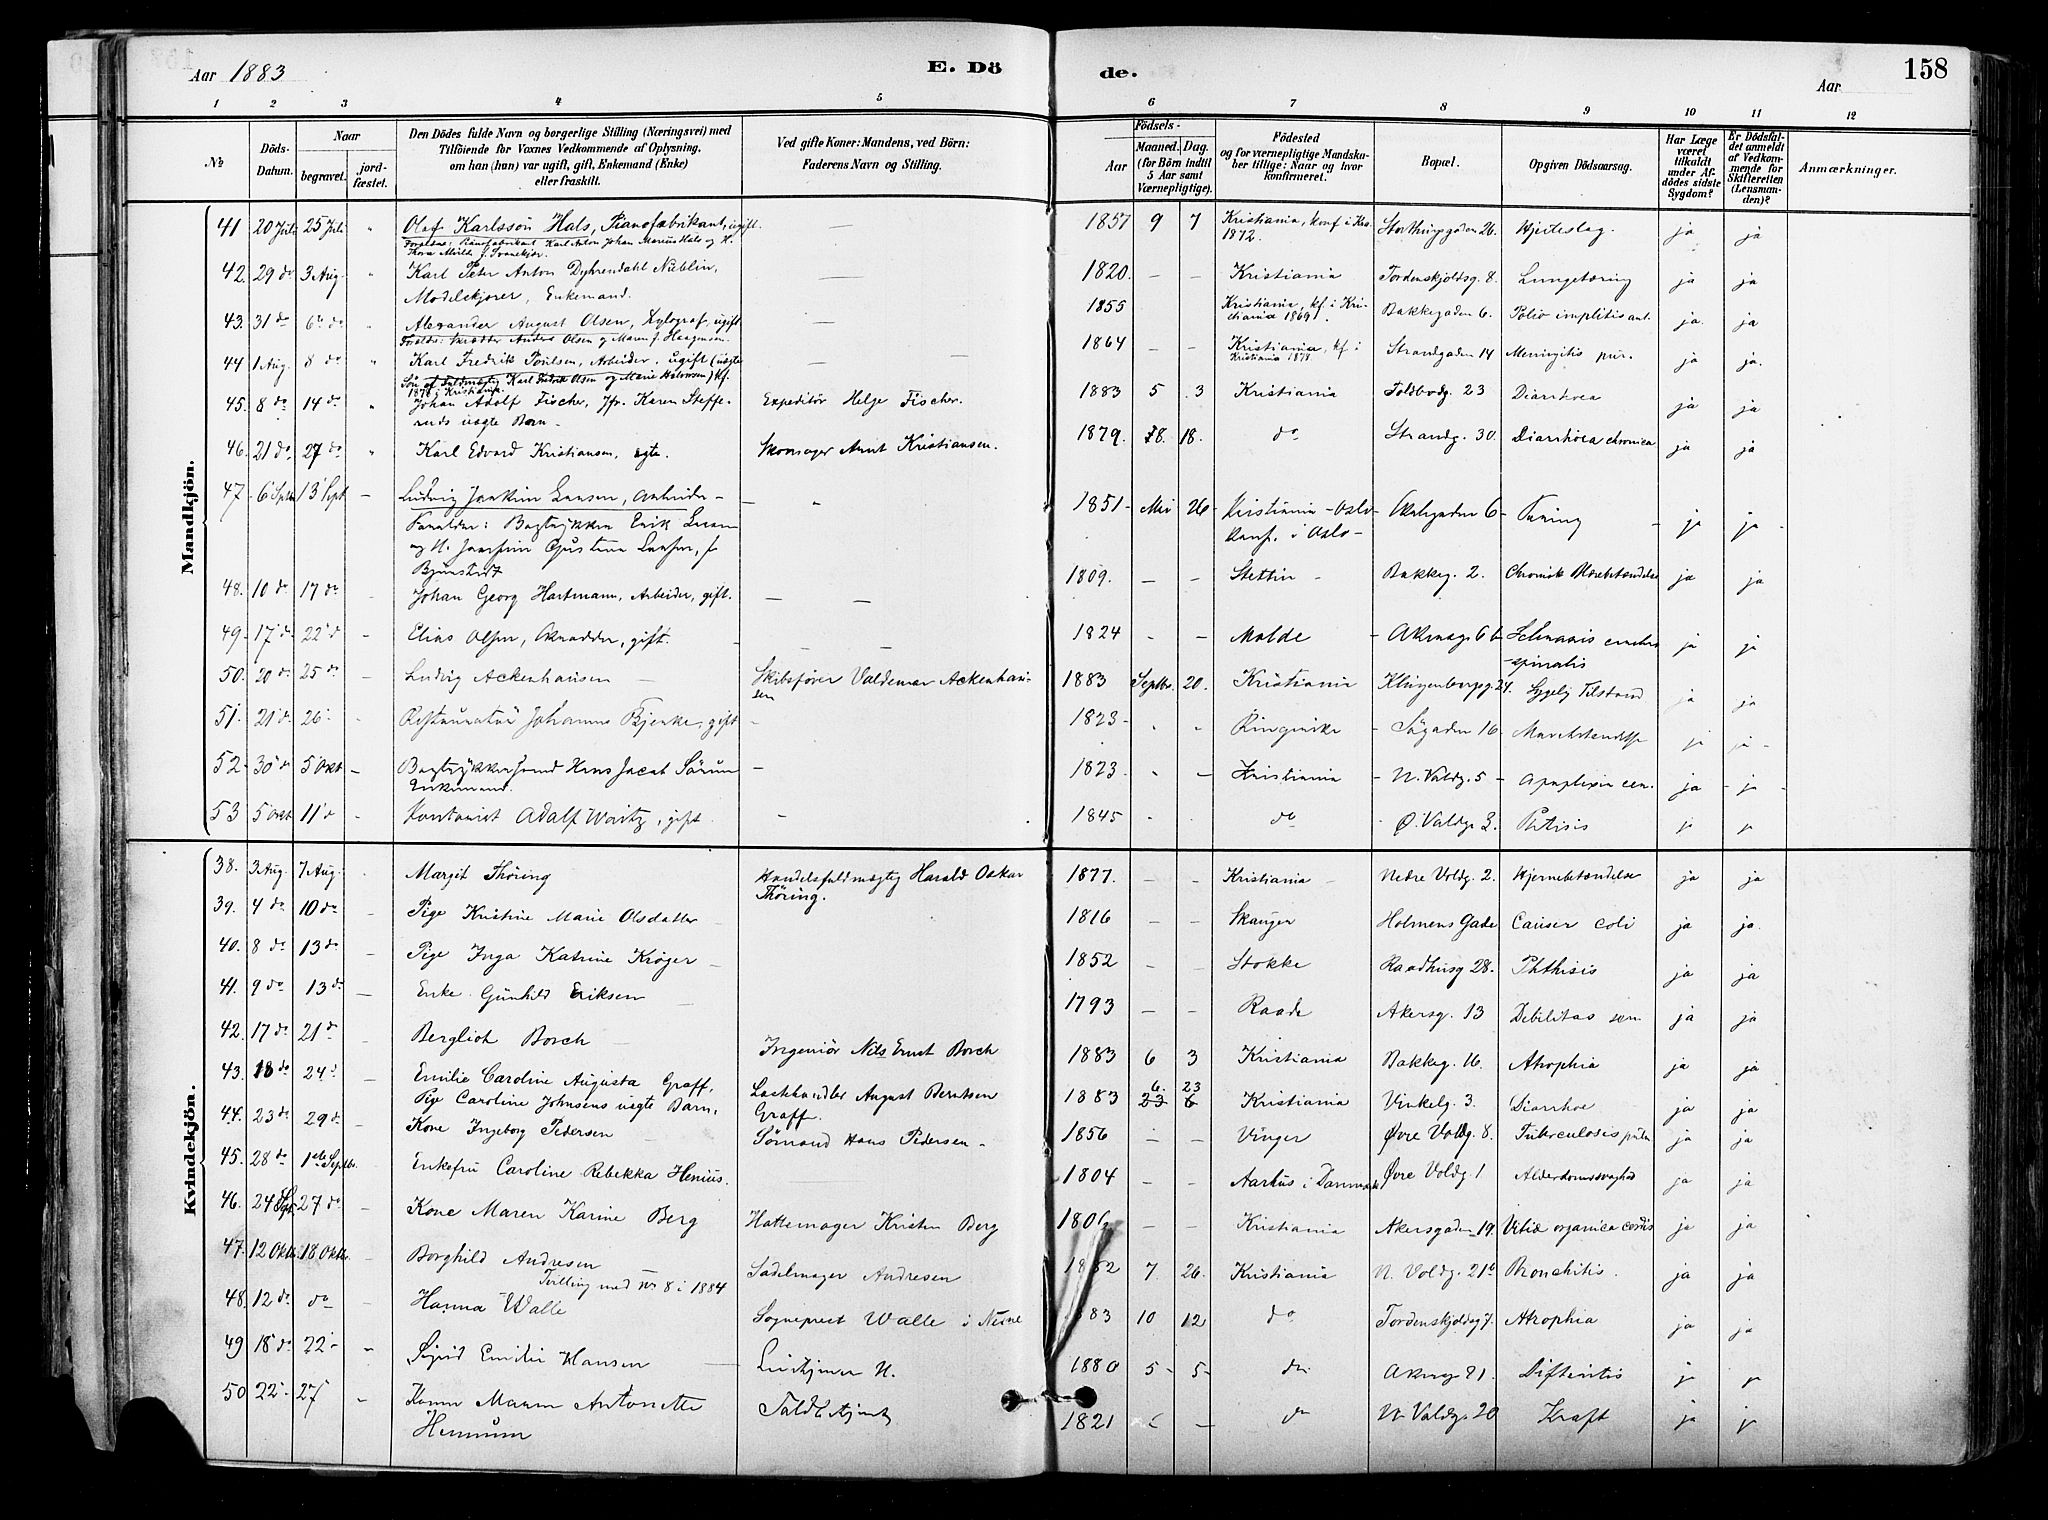 Aar 1883
E. Dö
de.
Aar
158
1 2 3 4 5 6 7 8 9 10 11 12
№
Döds-
Datum.
Naar
begravet.
jord-
fæstet.
Den Dödes fulde Navn og borgerlige Stilling (Næringsvei) med
Tilföiende for Voxnes Vedkommende af Oplysning,
om han (hun) var ugift, gift, Enkemand (Enke)
eller fraskilt.
Ved gifte Koner: Mandens, ved Börn:
Faderens Navn og Stilling.
Födsels-
Aar
Maaned. Dag.
(for Börn indtil
5 Aar samt
Værnepligtige).
Födested
og for værnepligtige Mandska-
ber tillige: Naar og hvor
konfirmeret.
Bopæl.
Opgiven Dödsaarsag.
Har Læge
været
tilkaldt
under Af-
dödes sidste
Sygdom?
Er Dödsfal-
det anmeldt
af Vedkom-
mende for
Skifteretten
(Lensman-
den)?
Anmærkninger.
Mandkjön.
41 20 Juli 25 Juli " Olaf Karlsson Hals, Pianofabrikant, ugift. — 1857 9 7 Kristiania, konf i Kra. Storthingsgaden 26. Hjerteslag. ja ja
1872.
Forældre: Pianofabrikant Karl Anton Johan Marius Hals og H.
Thora Alvilde f. Svanekjær.
42. 29 do 3 Aug. " Karl Peter Anton Dyhrendahl Nüblin, — 1820. — — Kristiania Tordenskjoldsg. 8. Lungetæring ja ja
Modelskjærer, Enkemand.
43. 31 do 6te do " Alexander August Olsen, Xylograf, ugift — 1855 Kristiania, kf. i Kri- Bakkegaden 6. Polio implitis ant. ja. ja
stiania 1869.
Forældre: Skrædder Anders Olsen og Maren f. Haagensen.
44 1 Aug. 8 do " Karl Fredrik Poulsen, Arbeider, ugift (uægte — 1864 — — Kristiania, kf i Strandgaden 14 Meningitis pur. ja ja.
Kristiania 1878.
Søn af Fuldmægtig Karl Fredrik Olsen og Marie Halvorsen) kf.
1878 i Kristiania.
45. 8 do 14 do " Johan Adolf Fischer, Jfr. Karen Steffe- Expeditör Helge Fischer. 1883 5 3 Kristiania Toldbodg. 23 Diarrhoea ja ja
ruds uægte Barn —
46. 21 do 27 do " Karl Edvard Kristiansen, ægte. Skomager Arnt Kristiansen. 1879. 8. 18. do Strandg. 30. Diarrhoea chronica ja ja
47 - 6 Sptb 13 Sept — Ludvig Joakim Larsen, Arbeider — — " 1851 - Mai 26 - Kristiania - Oslo - Akersgaden 6 - Tæring — ja ja
Konf. i Oslo -
Forældre: Bogtrykker Erik Larsen
og H. Josefine Gustava Larsen, f
Bjurstedt
48. 10 do 17 do - Johan Georg Hartmann, Arbeider, gift. — — 1809. — — Stettin - Bakkeg. 2. Chronisk Marvbetændelse ja ja
49 - 17 do 22 d - Elias Olsen, gift. - — 1824 - - Molde - Akersg. 66 - cerebro ja ja
-spinalis
50. 20 do 25 do - Ludvig Ackenhausen — Skibsfører Valdemar Ackenhau- 1883 Septbr. 20. Kristiania Klingenbergg. 24. Sygelig Tilstand ja ja
sen
51. 21 d. 26 - - Restauratör Johannes Bjerke, gift - 1823 - - - Ringerike - Søgaden 16 - Marvbetændelse ja ja -
52 - 30 d 5 Okt — Bogtrykkersvend Hans Jacob Sörum - 1823. - - Kristiania - N. Voldg. 5 - Apoplexia cer. ja - ja -
Enkemand.
53 5 Okt 11 d - Kontorist Adolf Woritz, gift. - 1845 - - do Ø. Voldg. 3. Phtisis ja ja
Kvindekjön.
38. 3 Aug. 7 Aug. . Margit Thöring Handelsfuldmægtig Harald Oskar 1877. — — Kristiania — Nedre Voldg. 2. Hjernebetændelse ja ja
Thöring.
39. 4 do 10 do - Pige Kristine Marie Olsdatter — 1816 — — Skanger Holmens Gade Cancer coli ja ja.
40. 8 do 13 do - Pige Inga Katrine Krøger — 1852 — — Stokke Raadhusg 28. Phthisis ja ja
41. 9 do 13 do — Enke Gunhild Eriksen — 1793 — — Raade Akersg. 13 Debilitas sen ja ja
42. 17 do 21 do - Bergliot Borch — Ingeniör Nils Ernst Borch 1883 6 3 Kristiania Bakkeg. 16. Atrophia ja ja
43. 18 do 24 d - Emilie Caroline Augusta Graff, Lasthandler August Berntsen 1883 6. 23 Kristiania Vinkelg. 3. Diarrhoe ja ja
23 6
Pige Caroline Johnsens uægte Barn. Graff.
44. 23 do 29 do - Kone Ingeborg Pedersen — Sømand Hans Pedersen - 1856 - - Vinger Øvre Voldg. 8. Tuberculosis pulm ja ja
45. 28 do 1ste Septbr. Enkefru Caroline Rebekka Henius. 1804 — — Aarhus i Danmark Øvre Voldg. 1 Alderdomssvaghed ja ja
46. 24 Sept. 27 do - Kone Maren Karine Berg Hattemager Kristen Berg 1806 — — Kristiania Akersgaden 19. Vitia organica cordis ja ja
47. 12 Oktbr. 18 Oktbr. - Borghild Andresen Sadelmager Andresen 1882 7. 26. Kristiania N. Voldg. 21b Bronchitis. ja ja
Tvilling med No 8 i 1884
48. 12 do do - Hanna Walle Sogneprest Walle i Nesne 1883 10 12 do Tordenskjoldsg 7. Atrophia ja ja
49 18 do 22 - " Sigrid Emilie Hansen — H. 1880 5 - 5 - do Akersg 21. Difteritis ja ja
50 22 - 27 - Kone Maren Antonette 1821 — do N Voldg. 20 Kræft ja ja
Hennum